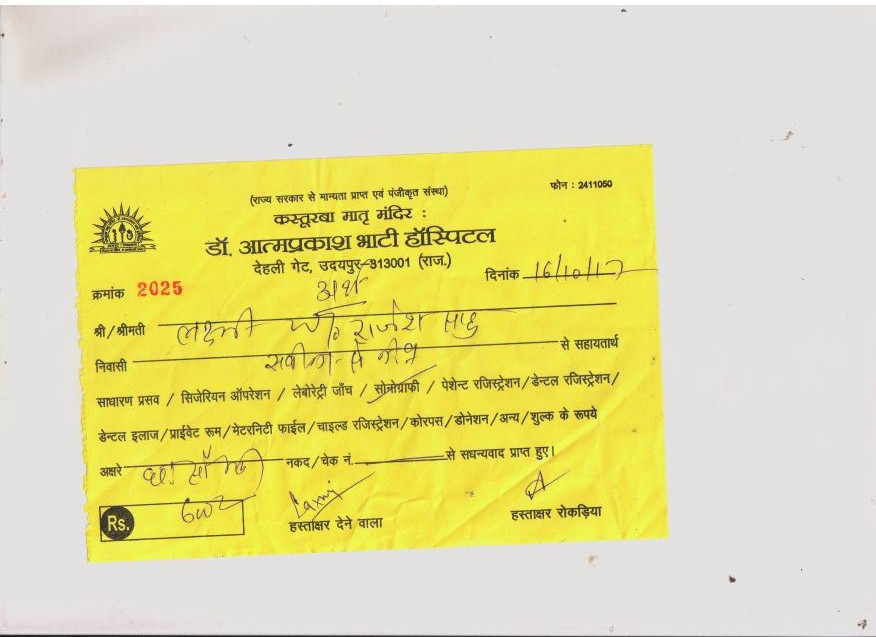 (राज्य सरकार से मान्यता प्राप्त एवं पंजीकृत संस्था)
फोन : 2411050
कस्तूरबा मातृ मंदिर :
डॉ. आत्मप्रकाश भाटी हॉस्पिटल
देहली गेट, उदयपुर-313001 (राज.)
क्रमांक 2025
दिनांक 16/10/17
श्री/श्रीमती लक्ष्मी राजेश साहु
निवासी से सहायतार्थ
साधारण प्रसव / सिजेरियन ऑपरेशन / लेबोरेट्री जाँच / सोनोग्राफी / पेशेन्ट रजिस्ट्रेशन/डेन्टल रजिस्ट्रेशन/
डेन्टल इलाज/प्राईवेट रूम/मेटरनिटी फाईल/चाइल्ड रजिस्ट्रेशन/कोरपस/डोनेशन/अन्य/शुल्क के रूपये
अक्षरे नकद/चेक नं. से सधन्यवाद प्राप्त हुए।
Rs.
Laxmi
हस्ताक्षर देने वाला
हस्ताक्षर रोकड़िया